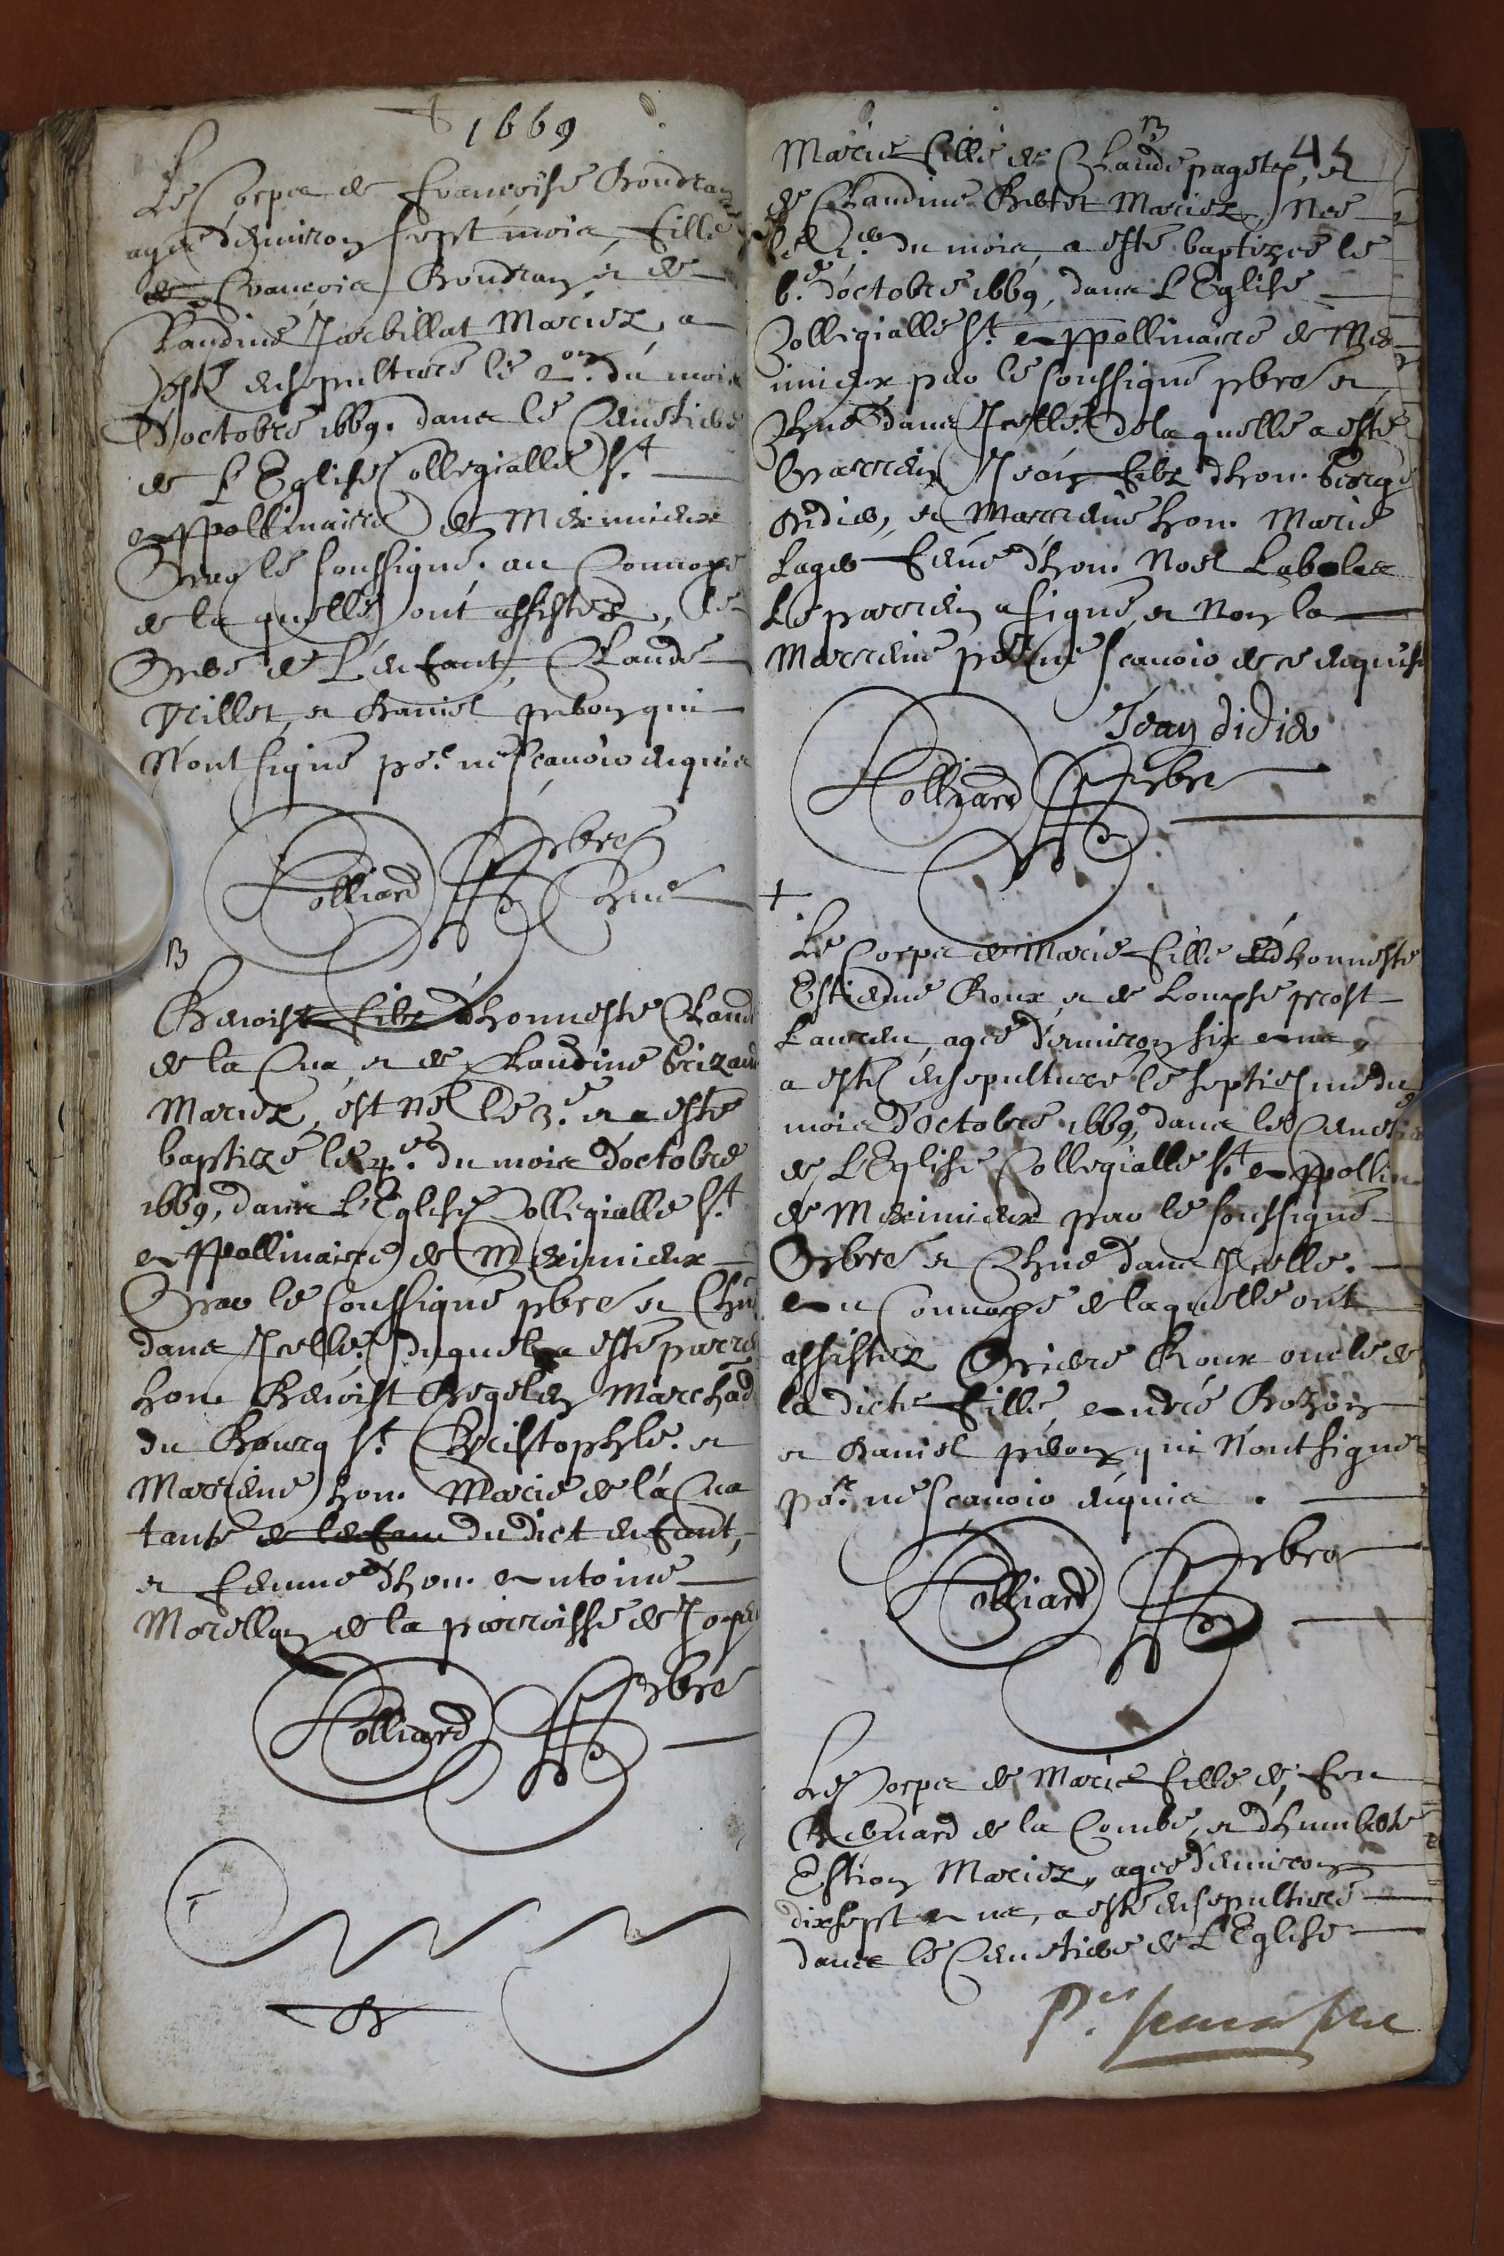 1669
Le Corps de Françoise Boudran
agée denviron sept mois, fille
de François Boudran et de
Claudine Jacbillat Mariez, a
esté ensepulturé le 2on. du mois
d'octobre 1669. dans le Cemetiere
de L'Eglise Collegialle St
Appollinaire de Meximieux
Par le soussigné. au Convoye
de laquelle ont assistez, le
Pere de L'enfant, Claude
Millet, et Daniel prevon qui
N'ont signé por. ne scavoir enquis
Colliard Pbre
Curé
B
Benoist filz d'honneste Claude
de la Cua, et de Claudine
Mariez, est né le 3.e et a esté
baptizé le 4.e du mois d'octobre
1669, dans L'Eglise Collegialle St.
Appollinaire de Meximieux
Par le soussigné pbre et Curé
dans Icelle. duquel a esté parrein
hon. Benoist Marchad
du Bourg St. Christophle. et
Marreine hon. Marie de la Cua
tante de lenfan dudict enfant,
et femme d'hon. Antoine
Morellon de la parroisse de
Colliard Pbre
45
B
Marie fille de Claude pagete, et
de Claudine Mariez, Née
le du mois, a esté baptizée le
6.e d'octobre 1669, dans L'Eglise
Collegialle St. Appollinaire de Me-
ximieux par le soussigné pbre et
Curé dans Icelle. de laquelle a esté
Parrein Jean filz d'hon. George
Didier, et Marreine hon. Marie
Lager feme d'hon. Noel
Le parrein a signé, et Non la
Marreine por ne scavoir de ce enquise
Jean didier
Colliard Pbre
+
Le Corps de Marie fille d'honneste
Estienne Roux et de Louyse prost
Laurens, agée d'environ six ans,
a esté ensepulturé le septiesme du
mois d'Octobre 1669, dans le Cemetiere
de L'Eglise Collegialle St. Appollin.
de Meximieux par le soussigné
Pbre et Curé dans Icelle.
Au Convoye de laquelle ont
assistez Pierre Roux oncle de
la dicte fille, André
et Daniel prevon qui N'ont signé
por. ne scavoir enquis.
Colliard Pbre
Le Corps de Marie fille de feu
Bernard de la Combe, et d'humberte
Estion Mariez, agée d'environ
dixsept ans, a esté ensepulturé
dans le Cemetiere de L'Eglise